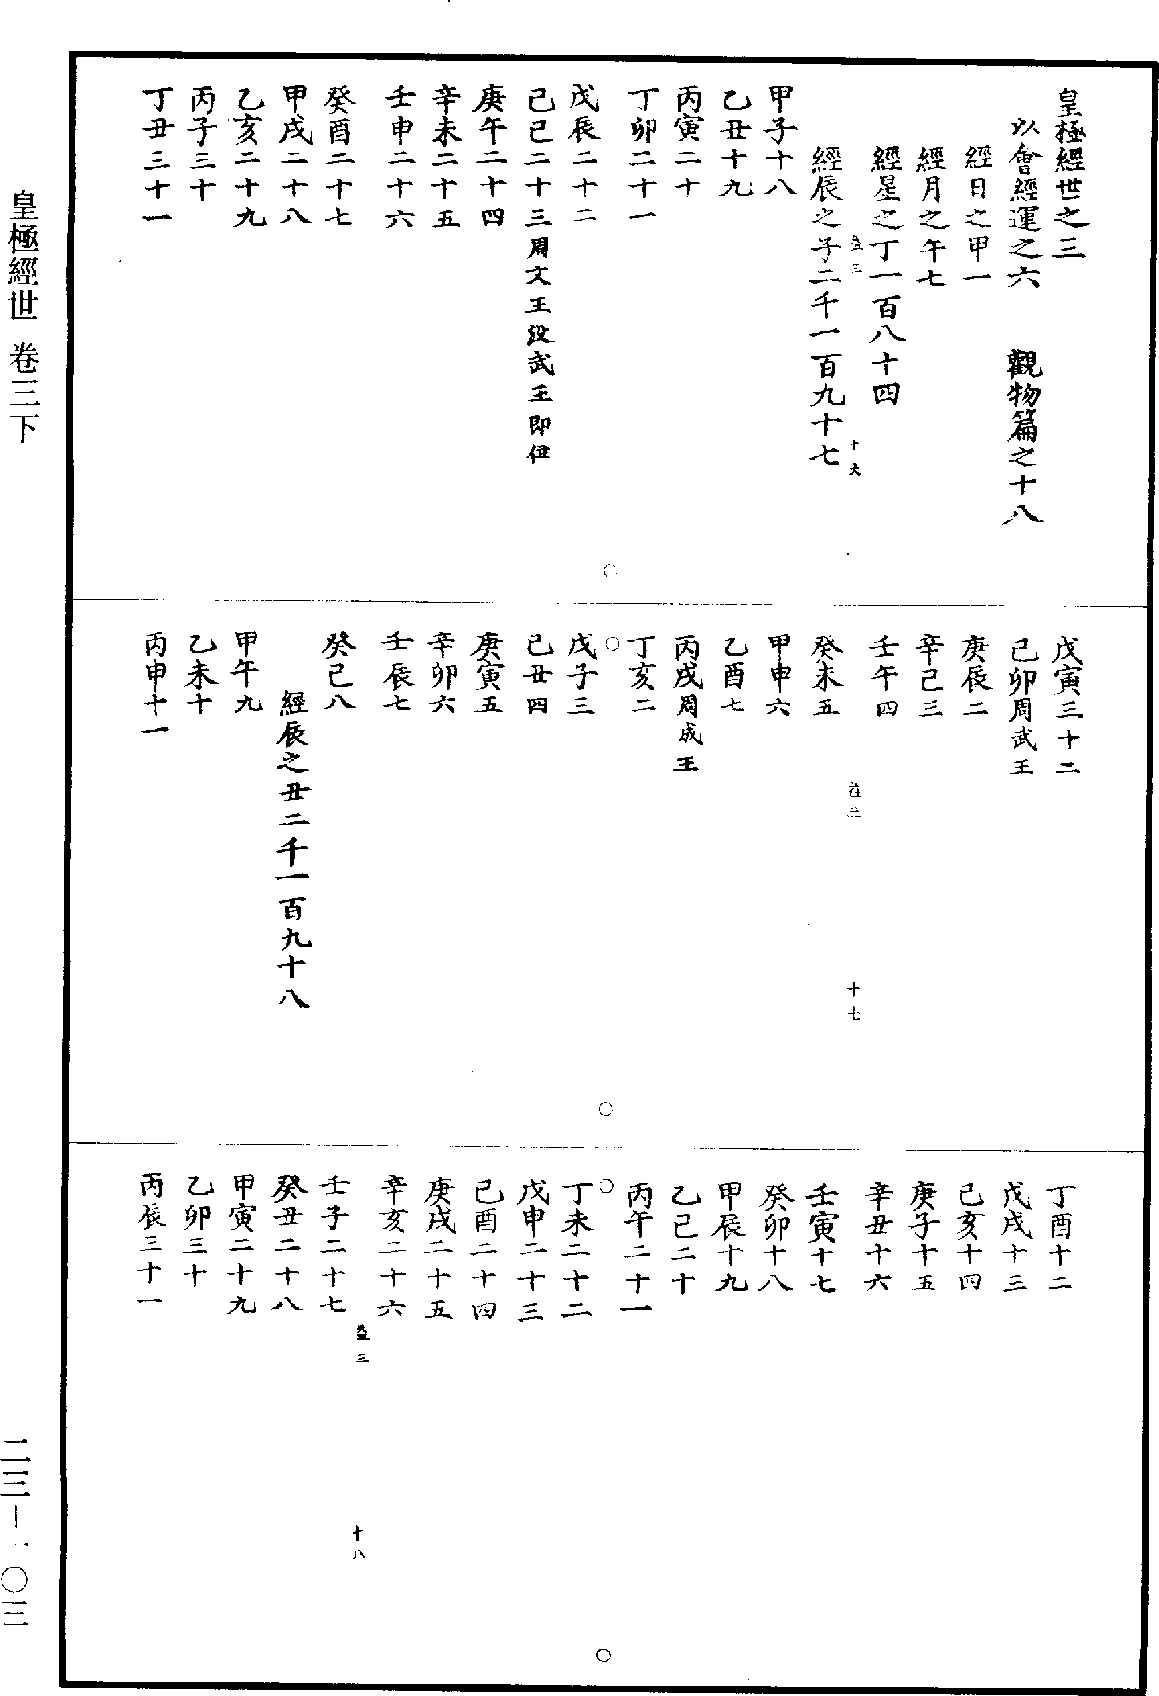 皇極經世之三
以會經運之六　觀物篇之十八
經日之甲一
經月之午七
經星之丁一百八十四
經辰之子二千一百九十七
甲子十八
乙丑十九
丙寅二十
丁卯二十一
戊辰二十二
己巳二十三周文王沒武王即位
庚午二十四
辛未二十五
壬申二十六
癸酉二十七
甲戌二十八
乙亥二十九
丙子三十
丁丑三十一
戊寅三十二
己卯周武王
庚辰二
辛巳三
壬午四
癸未五
甲申六
乙酉七
丙戌周成王
丁亥二
戊子三
己丑四
庚寅五
辛卯六
壬辰七
癸巳八
經辰之丑二千一百九十八
甲午九
乙未十
丙申十一
丁酉十二
戊戌十三
己亥十四
庚子十五
辛丑十六
壬寅十七
癸卯十八
甲辰十九
乙巳二十
丙午二十一
丁未二十二
戊申二十三
己酉二十四
庚戌二十五
辛亥二十六
壬子二十七
癸丑二十八
甲寅二十九
乙卯三十
丙辰三十一
卷三
十七
卷三
十八
皇極經世　卷三下
二三—一〇三